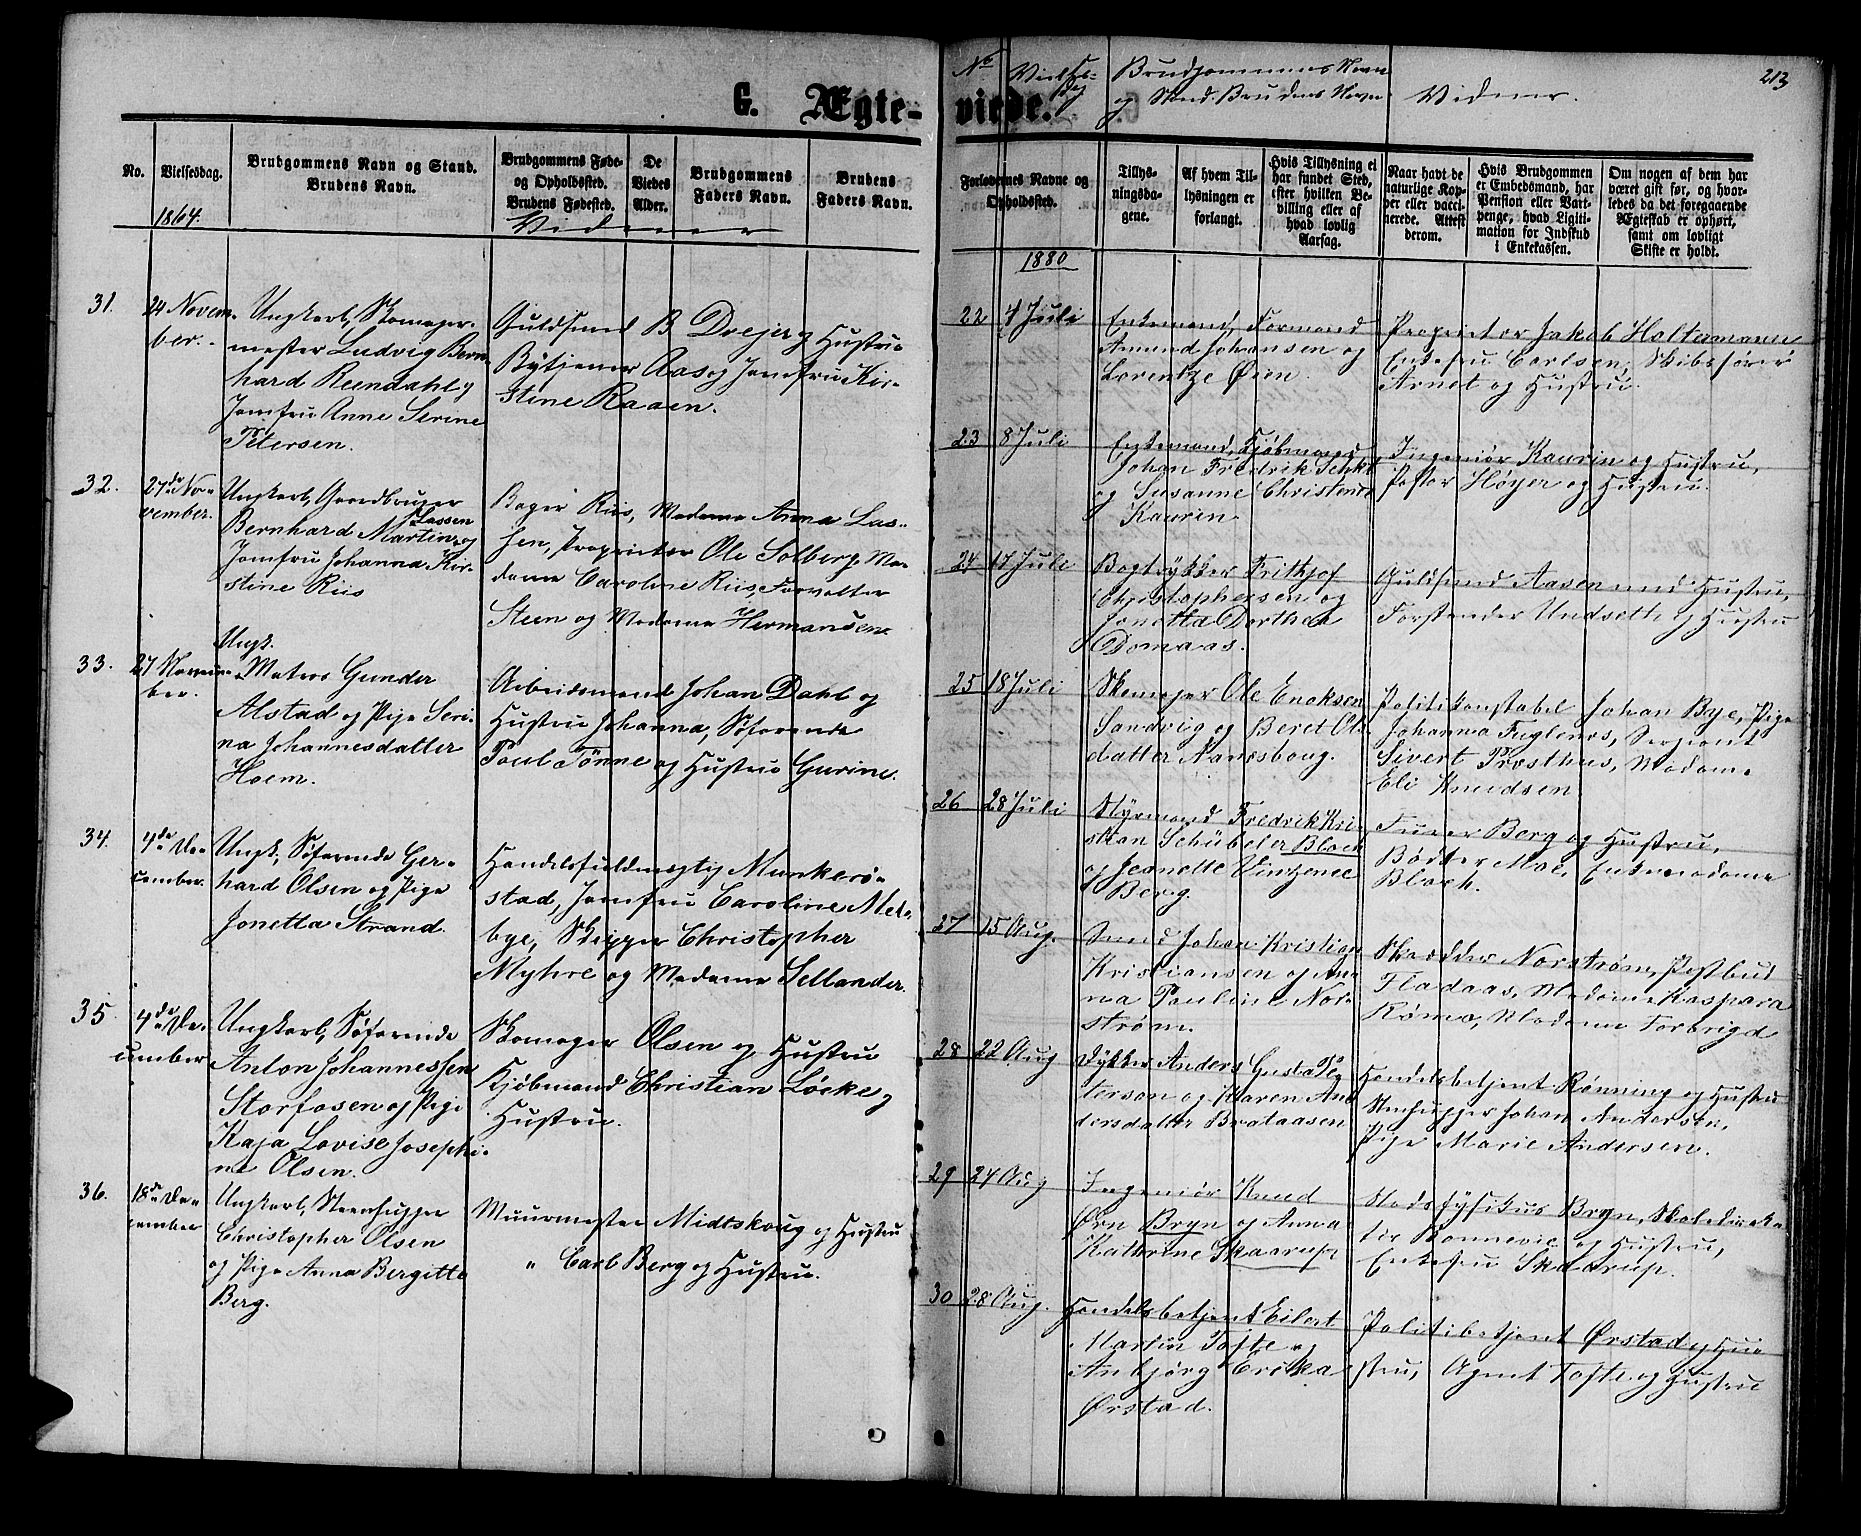 G. Ægte-
No.
Vielsesdag.
Brudgommens Navn og Stand.
Brudens Navn.
Brudgommens Føde-
og Opholdssted.
Brudens Fødested.
De
Viedes
Alder.
Brudgommens
Faders Navn.
Brudens
Faders Navn.
1864.
Vidner
31.
24 Novem-
ber.
Ungkarl, Skomager-
mester Ludvig Bern-
hard Reendahl og
Jomfru Anne Serine
Petersen.
Guldsmed B Drejer og Hustru
Bytjener Aas og Jomfru Kir-
stine Raaen.
32.
27de No-
vember.
Ungkarl, Gaardbruger
Bernhard Martin Lassen og
Jomfru Johanna Kir-
stine Riis
Bager Riis, Madame Anna Las-
sen, Proprietær Ole Solberg, Ma-
dame Caroline Riis, Forvalter
Steen og Madame Hermansen.
33.
27 Novem-
ber.
Ungk.
Matros Gunder
Alstad og Pige Seri-
na Johannesdatter
Hoem.
Arbeidsmand Johan Dahl og
Hustru Johanna, Søfarende
Poul Tønne og Hustru Gurine.
34.
4de De-
cember.
Ungk, Søfarende Ger-
hard Olsen og Pige
Jonetta Strand.
Handelsfuldmægtig Munkerø-
stad, Jomfru Caroline Mel-
bye, Skipper Christopher
Myhre og Madame Sellander.
35
4de De-
cember
Ungkarl, Søfarende
Anton Johannessen
Storfosen og Pige
Kaja Lovise Josephi-
ne Olsen.
Skomager Olsen og Hustru
Kjøbmand Christian Løcke og
Hustru.
36.
18de De-
cember
Ungkarl, Steenhugger
Christopher Olsen
og Pige Anna Bergitte
Berg.
Muurmester Midtskoug og Hustru
" Carl Berg og Hustru.
213
No
Vielses-
dag
Brudgommens Navn
og Stand. Brudens Navn
Vidner.
viede.
Forlovernes Navne og
Opholdssted.
Tillys-
ningsda-
gene.
Af hvem Til-
lysningen er
forlangt.
Hvis Tillysning ei
har fundet Sted,
efter hvilken Be-
villing eller af
hvad lovlig
Aarsag.
Naar havt de
naturlige Kop-
per eller vacci-
nerede. Attest
derom.
Hvis Brudgommen
er Embedsmand, har
Pension eller Vart-
penge, hvad Ligiti-
mation for Indskud
i Enkekassen.
Om nogen af dem har
været gift før, og hvor-
ledes da det foregaaende
Ægteskab er ophørt,
samt om lovligt
Skifte er holdt.
1880
22
4 Juli
Enkemand, Formand
Amund Johansen og
Lorentze Øien.
Proprietær Jakob Haltermann
Enkefru Carlsen, Skibsfører
Arnet og Hustru.
23
8 Juli
Enkemand, Kjøbmand
Johan Fredrik
og Susanne
Kaurin
Ingeniør Kaurin og Hustru,
Pastor Høyer og Hustru.
24
17 Juli
Bogtrykker Frithjof
Christophersen og
Jonetta Dorthea
Domaas.
Guldsmed Aasen med Hustru,
Forstander Undseth og Hustru
25
18 Juli
Skomager Ole Enoksen
Sandvig og Beret Ols-
datter
Politikonstabel Johan Bye, Pige
Johanna Fuglenes, Sergeant
Sivert Præsthus, Madame
Eli Knudsen
26
28 Juli
Styrmand Fredrik Kri-
stian Schübeler Bloch
og Jeanette Vinzense
Berg.
Furer Berg og Hustru,
Bødker Moe, Enkemadame
Bloch.
27
15 Aug.
Smed Johan Kristian
Kristiansen og An-
na Pauline Nor-
strøm.
Skrædder Norstrøm, Postbud
Fladaas, Madame Kaspara
Rømo, Madame Forbrigd
28
22 Aug
Dykker Anders Gusta Pe-
terson og Karen An-
dersdatter Brataasen
Handelsbetjent Rønning og Hustru
Stenhugger Johan Andersen,
Pige Marie Andersen.
29
24 Aug
Ingeniør Knud
Ørn Bryn og Anna
Kathrine Skaarup
Stadsfysikus Bryn, Skoledirek-
tør Bonnevie og Hustru,
Enkefru Skaarup.
30
28 Aug.
Handelsbetjent Eilert
Martin Tofte og
Anbjørg Ericka
Ørstad.
Politibetjent Ørstad og Hu-
stru, Agent Tofte og Hustru